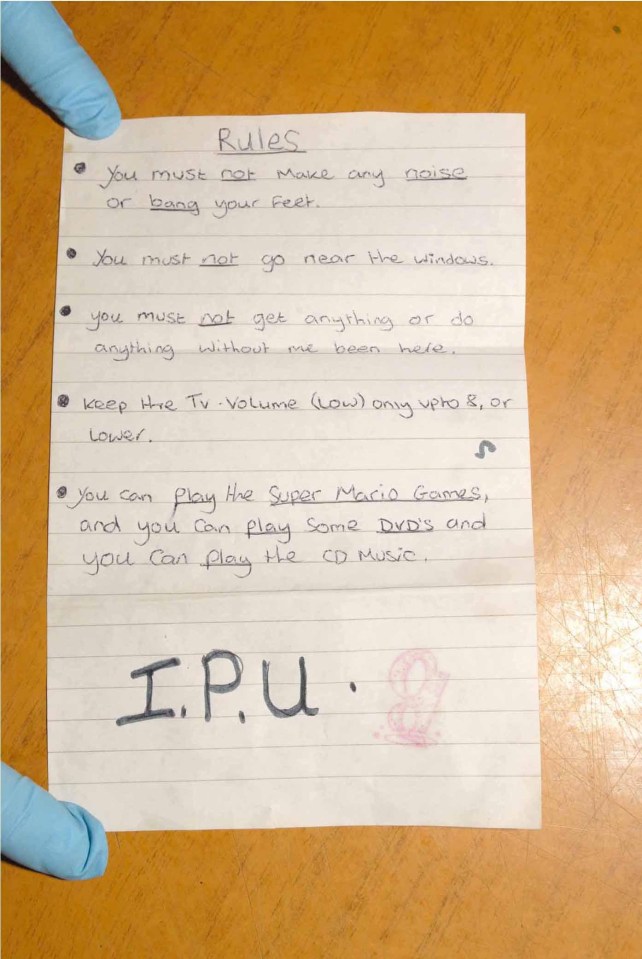 Rules
• You must not make any noise
or bang your feet.
• You must not go near the windows.
• you must not get anything or do
anything without me been here.
• keep the Tv. Volume (Low) only upto 8, or
Lower.
• You can play the Super Mario Games,
and you can play Some DVD's and
you can play the CD Music.
I.P.U.